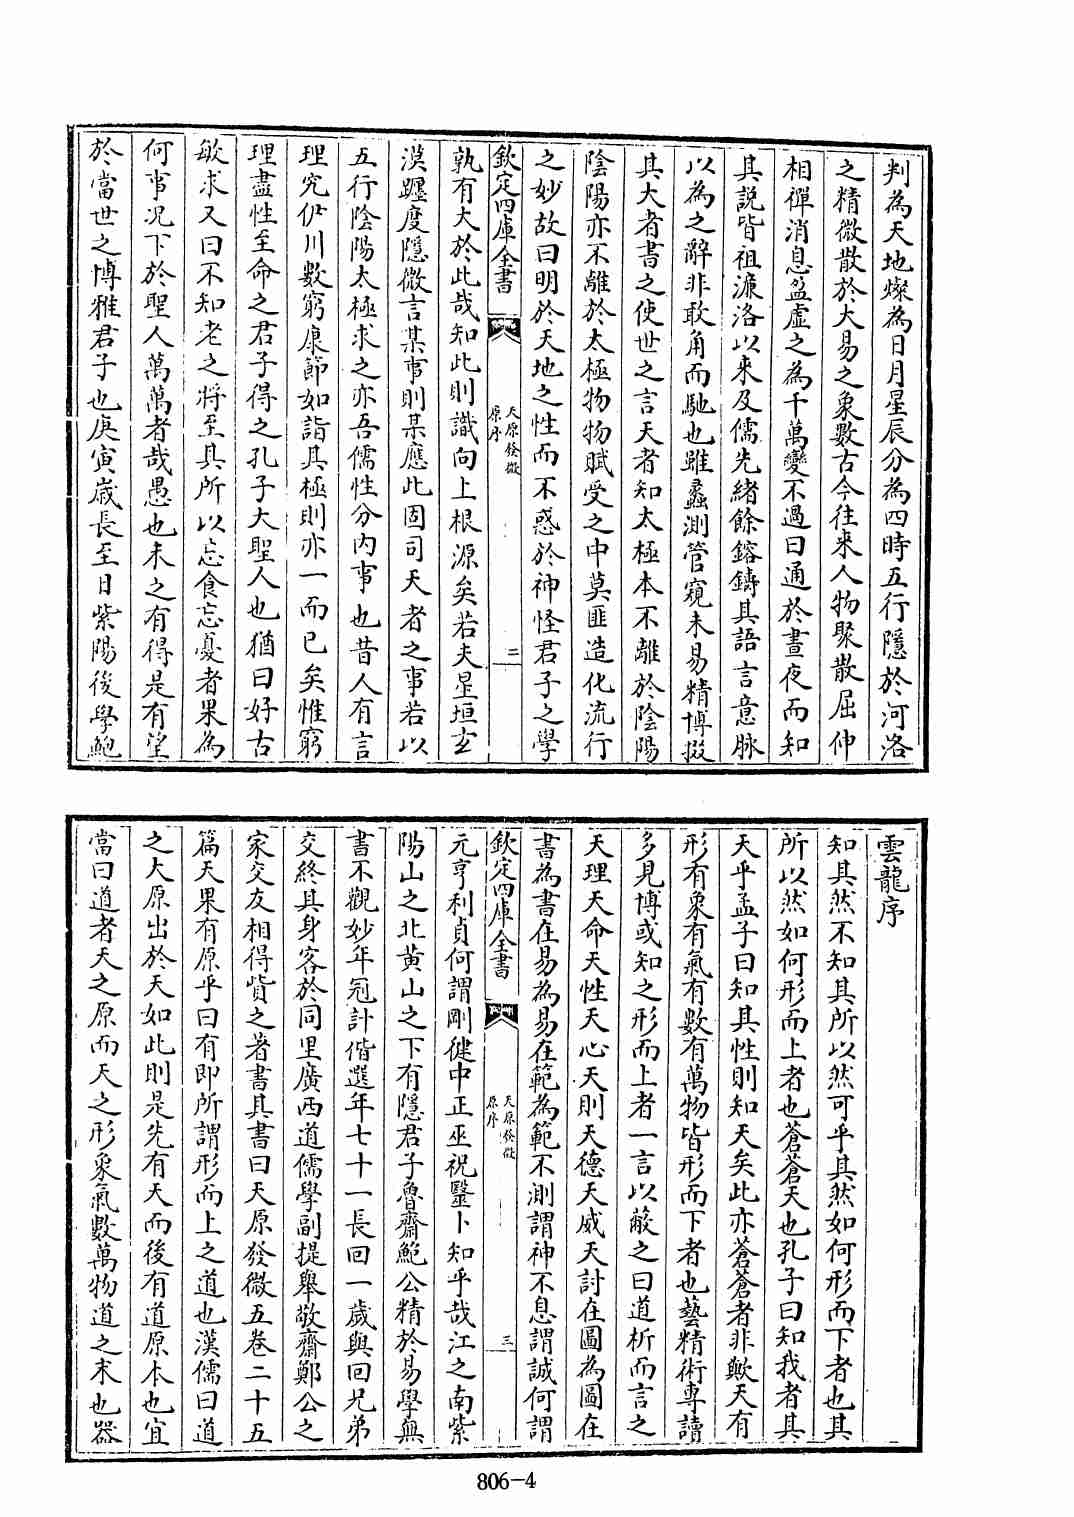 判為天地燦為日月星辰分為四時五行隱於河洛
之精微散於大易之象數古今往來人物聚散屈伸
相禪消息盈虛之為千萬變不過曰通於晝夜而知
其説皆祖濂洛以來及儒先緒餘鎔鑄其語言意脉
以為之辭非敢角而馳也雖蠡測管窺未易精博掇
其大者書之使世之言天者知太極本不離於陰陽
陰陽亦不離於太極物物賦受之中莫匪造化流行
之妙故曰明於天地之性而不惑於神怪君子之學
欽定四庫全書
天原發微
原序
二
孰有大於此哉知此則識向上根源矣若夫星垣玄
漠躔度隱微言某事則某應此固司天者之事若以
五行陰陽太極求之亦吾儒性分内事也昔人有言
理究伊川數窮康節如詣其極則亦一而已矣惟窮
理盡性至命之君子得之孔子大聖人也猶曰好古
敏求又曰不知老之將至其所以忘食忘憂者果為
何事况下於聖人萬萬者哉愚也未之有得是有望
於當世之博雅君子也庚寅嵗長至日紫陽後學鮑
雲龍序
知其然不知其所以然可乎其然如何形而下者也其
所以然如何形而上者也蒼蒼天也孔子曰知我者其
天乎孟子曰知其性則知天矣此亦蒼蒼者非歟天有
形有象有氣有數有萬物皆形而下者也藝精術專讀
多見博或知之形而上者一言以蔽之曰道析而言之
天理天命天性天心天則天德天威天討在圖為圖在
書為書在易為易在範為範不測謂神不息謂誠何謂
欽定四庫全書
天原發微
原序
三
元亨利貞何謂剛健中正巫祝毉卜知乎哉江之南紫
陽山之北黄山之下有隱君子魯齋鮑公精於易學無
書不觀妙年冠計偕選年七十一長回一歲與回兄弟
交終其身客於同里廣西道儒學副提舉敬齋鄭公之
家交友相得貲之著書其書曰天原發微五卷二十五
篇天果有原乎曰有即所謂形而上之道也漢儒曰道
之大原出於天如此則是先有天而後有道原本也宜
當曰道者天之原而天之形象氣數萬物道之末也器
806-4